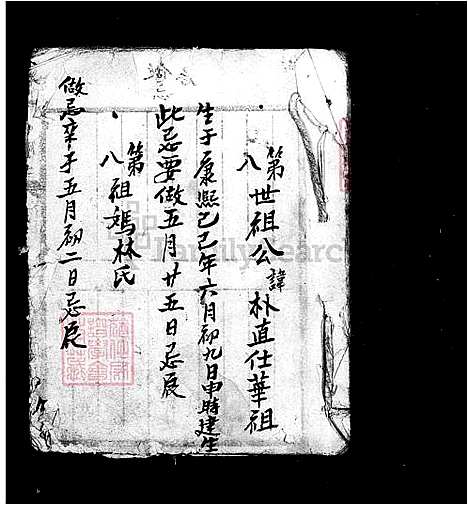 第八世祖公諱朴直仕華祖
生于康熙己巳年六月初九日申時建生
此忌要做五月廿五日忌辰
第八祖媽林氏
做忌卒于五月初二日忌辰
FamilySearch